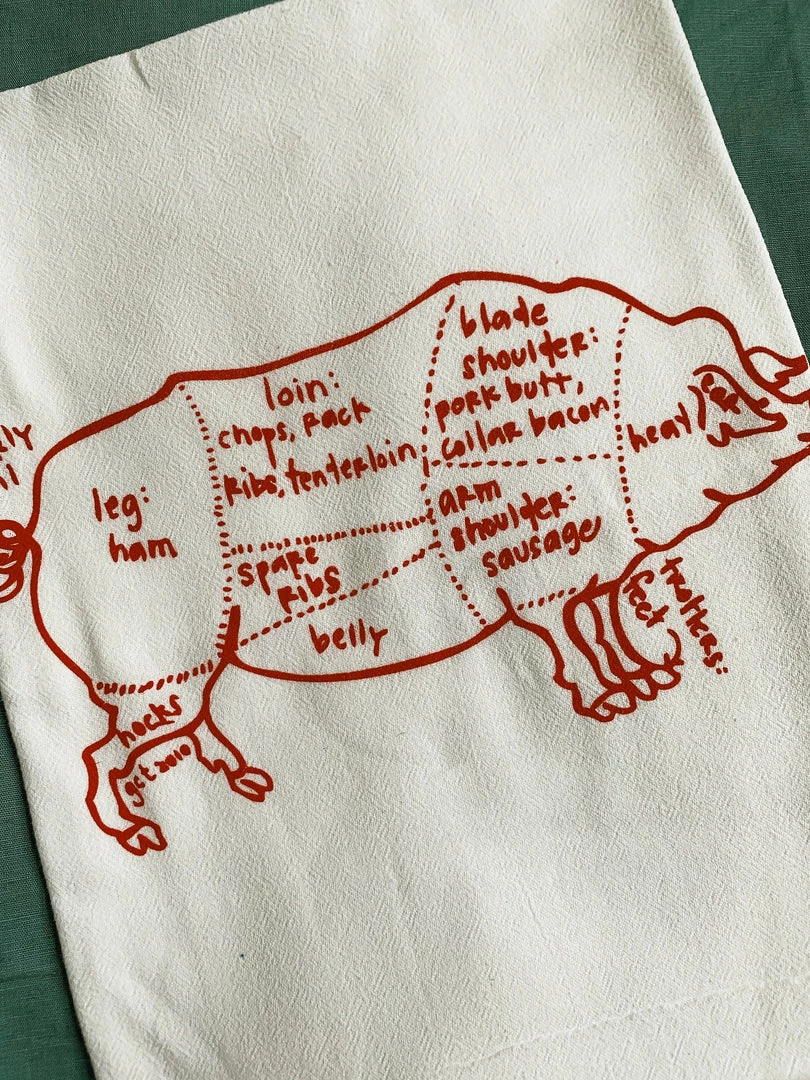 leg:
ham
loin:
chops, rack
ribs, tenterloin
spare
ribs
belly
blade
shoulder:
pork butt,
collar bacon
arm
shoulder:
sausage
head
ear
trotters:
feet
hocks